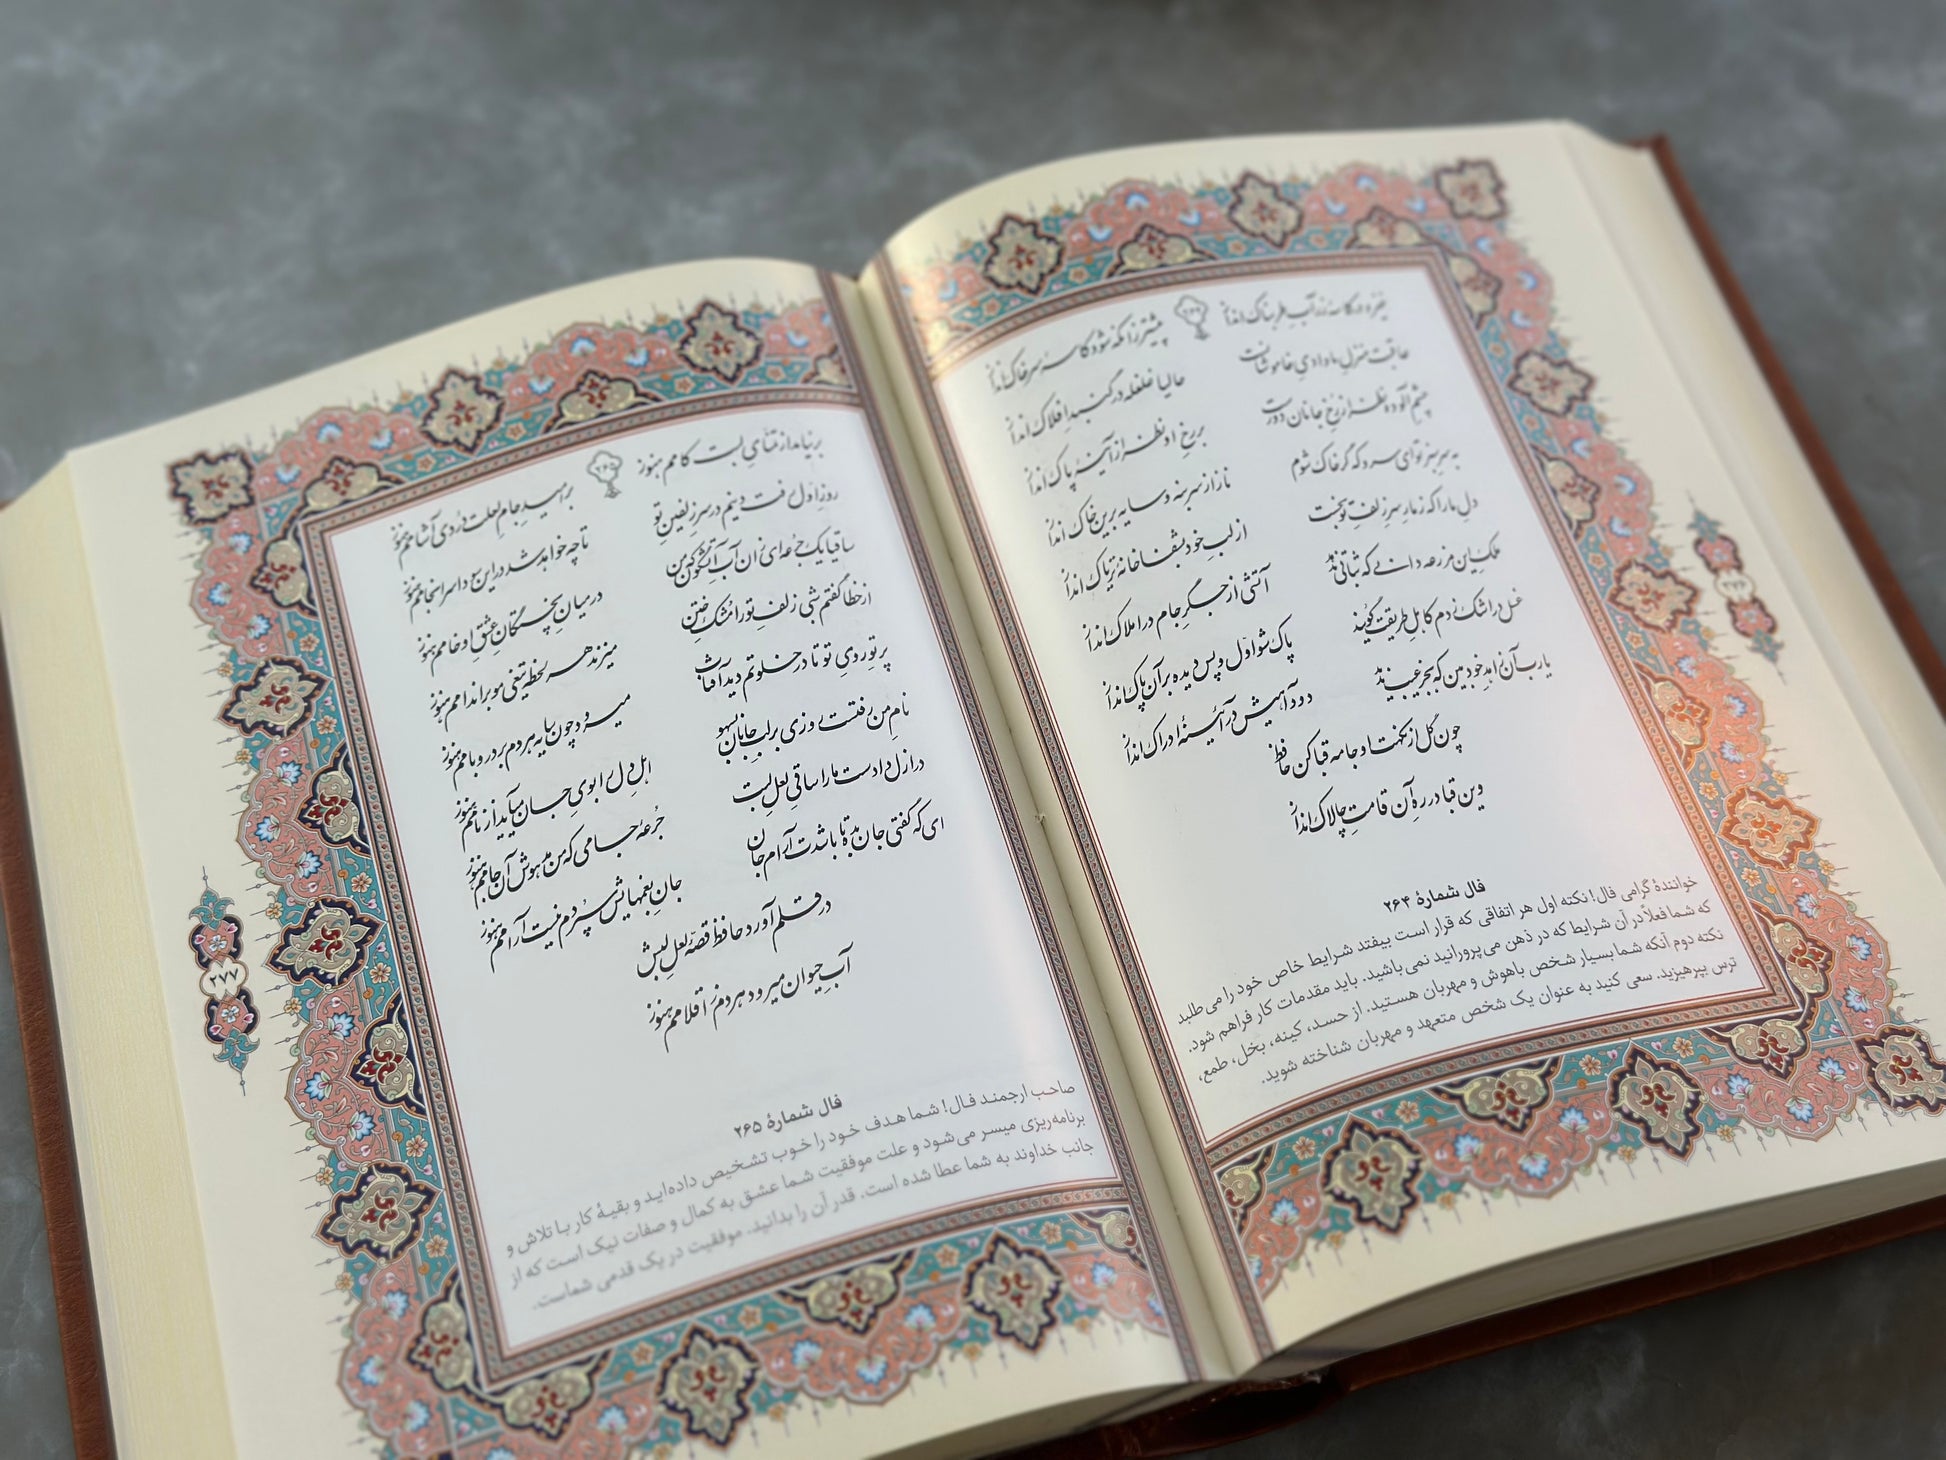 ۲۶۴
خیز و در کاسهٔ زر آبِ طربناک انداز پیشتر زانکه شود کاسهٔ سر خاک انداز
عاقبت منزلِ ما وادیِ خاموشانست حالیا غلغله در گنبدِ افلاک انداز
چشمِ آلوده نظر از رخِ جانان دورست بر رخِ او نظر از آینهٔ پاک انداز
به سرِ سبزِ تو ای سرو که گر خاک شوم ناز از سر بنه و سایه برین خاک انداز
دلِ ما را که ز مارِ سرِ زلفِ تو بخست از لبِ خود بشفاخانهٔ تریاک انداز
ملکِ این مزرعه دانی که ثباتی ندهد آتشی از جگرِ جام در املاک انداز
غسل در اشک زدم کاهلِ طریقت گویند پاک شو اوّل و پس دیده بر آن پاک انداز
یارب آن زاهدِ خودبین که بجز عیب ندید دودِ آهیش در آئینهٔ ادراک انداز
چون گل از نکهتِ او جامه قبا کن حافظ
وین قبا در رهِ آن قامتِ چالاک انداز
فال شمارهٔ ۲۶۴
خوانندهٔ گرامی فال! نکته اول هر اتفاقی که قرار است بیفتد شرایط خاص خود را می‌طلبد
که شما فعلاً در آن شرایط که در ذهن می‌پرورانید نمی‌باشید. باید مقدمات کار فراهم شود.
نکته دوم آنکه شما بسیار شخص باهوش و مهربان هستید. از حسد، کینه، بخل، طمع،
ترس بپرهیزید. سعی کنید به عنوان یک شخص متعهد و مهربان شناخته شوید.
۲۷۶
۲۶۵
برنیامد از تمنّایِ لبت کامم هنوز بر امیدِ جامِ لعلت دُردی آشامم هنوز
روزِ اوّل رفت دینم در سرِ زلفینِ تو تا چه خواهد شد در این سودا سرانجامم هنوز
ساقیا یک جرعه‌ای زان آبِ آتشگون که من در میانِ پختگانِ عشقِ او خامم هنوز
از خطا گفتم شبی زلفِ تو را مُشکِ ختن میزند هر لحظه تیغی مو بر اندامم هنوز
پرتوِ رویِ تو تا در خلوتم دید آفتاب میرود چون سایه هر دم بر در و بامم هنوز
نامِ من رفتست روزی بر لبِ جانان بسهو اهلِ دل را بویِ جان میآید از نامم هنوز
در ازل دادست ما را ساقیِ لعلِ لبت جُرعهٔ جامی که من مدهوشِ آن جامم هنوز
ای که گفتی جان بده تا باشدت آرامِ جان جان بغمهایش سپُردم نیست آرامم هنوز
در قلم آورد حافظ قصّهٔ لعلِ لبش
آبِ حیوان میرود هر دم ز اقلامم هنوز
فال شمارهٔ ۲۶۵
صاحب ارجمند فال! شما هدف خود را خوب تشخیص داده‌اید و بقیهٔ کار با تلاش و
برنامه‌ریزی میسر می‌شود و علت موفقیت شما عشق به کمال و صفات نیک است که از
جانب خداوند به شما عطا شده است. قدر آن را بدانید. موفقیت در یک قدمی شماست.
۲۷۷